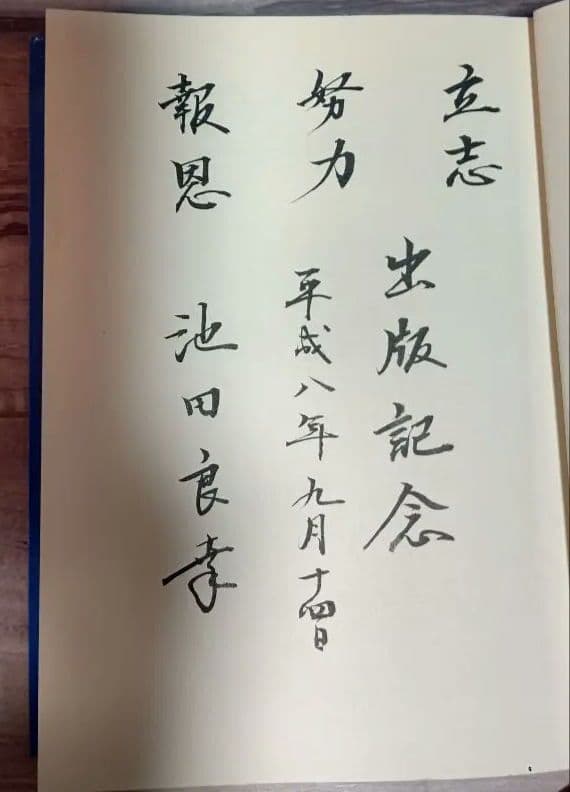 立志
出版記念
努力
平成八年九月十四日
報恩
池田良幸